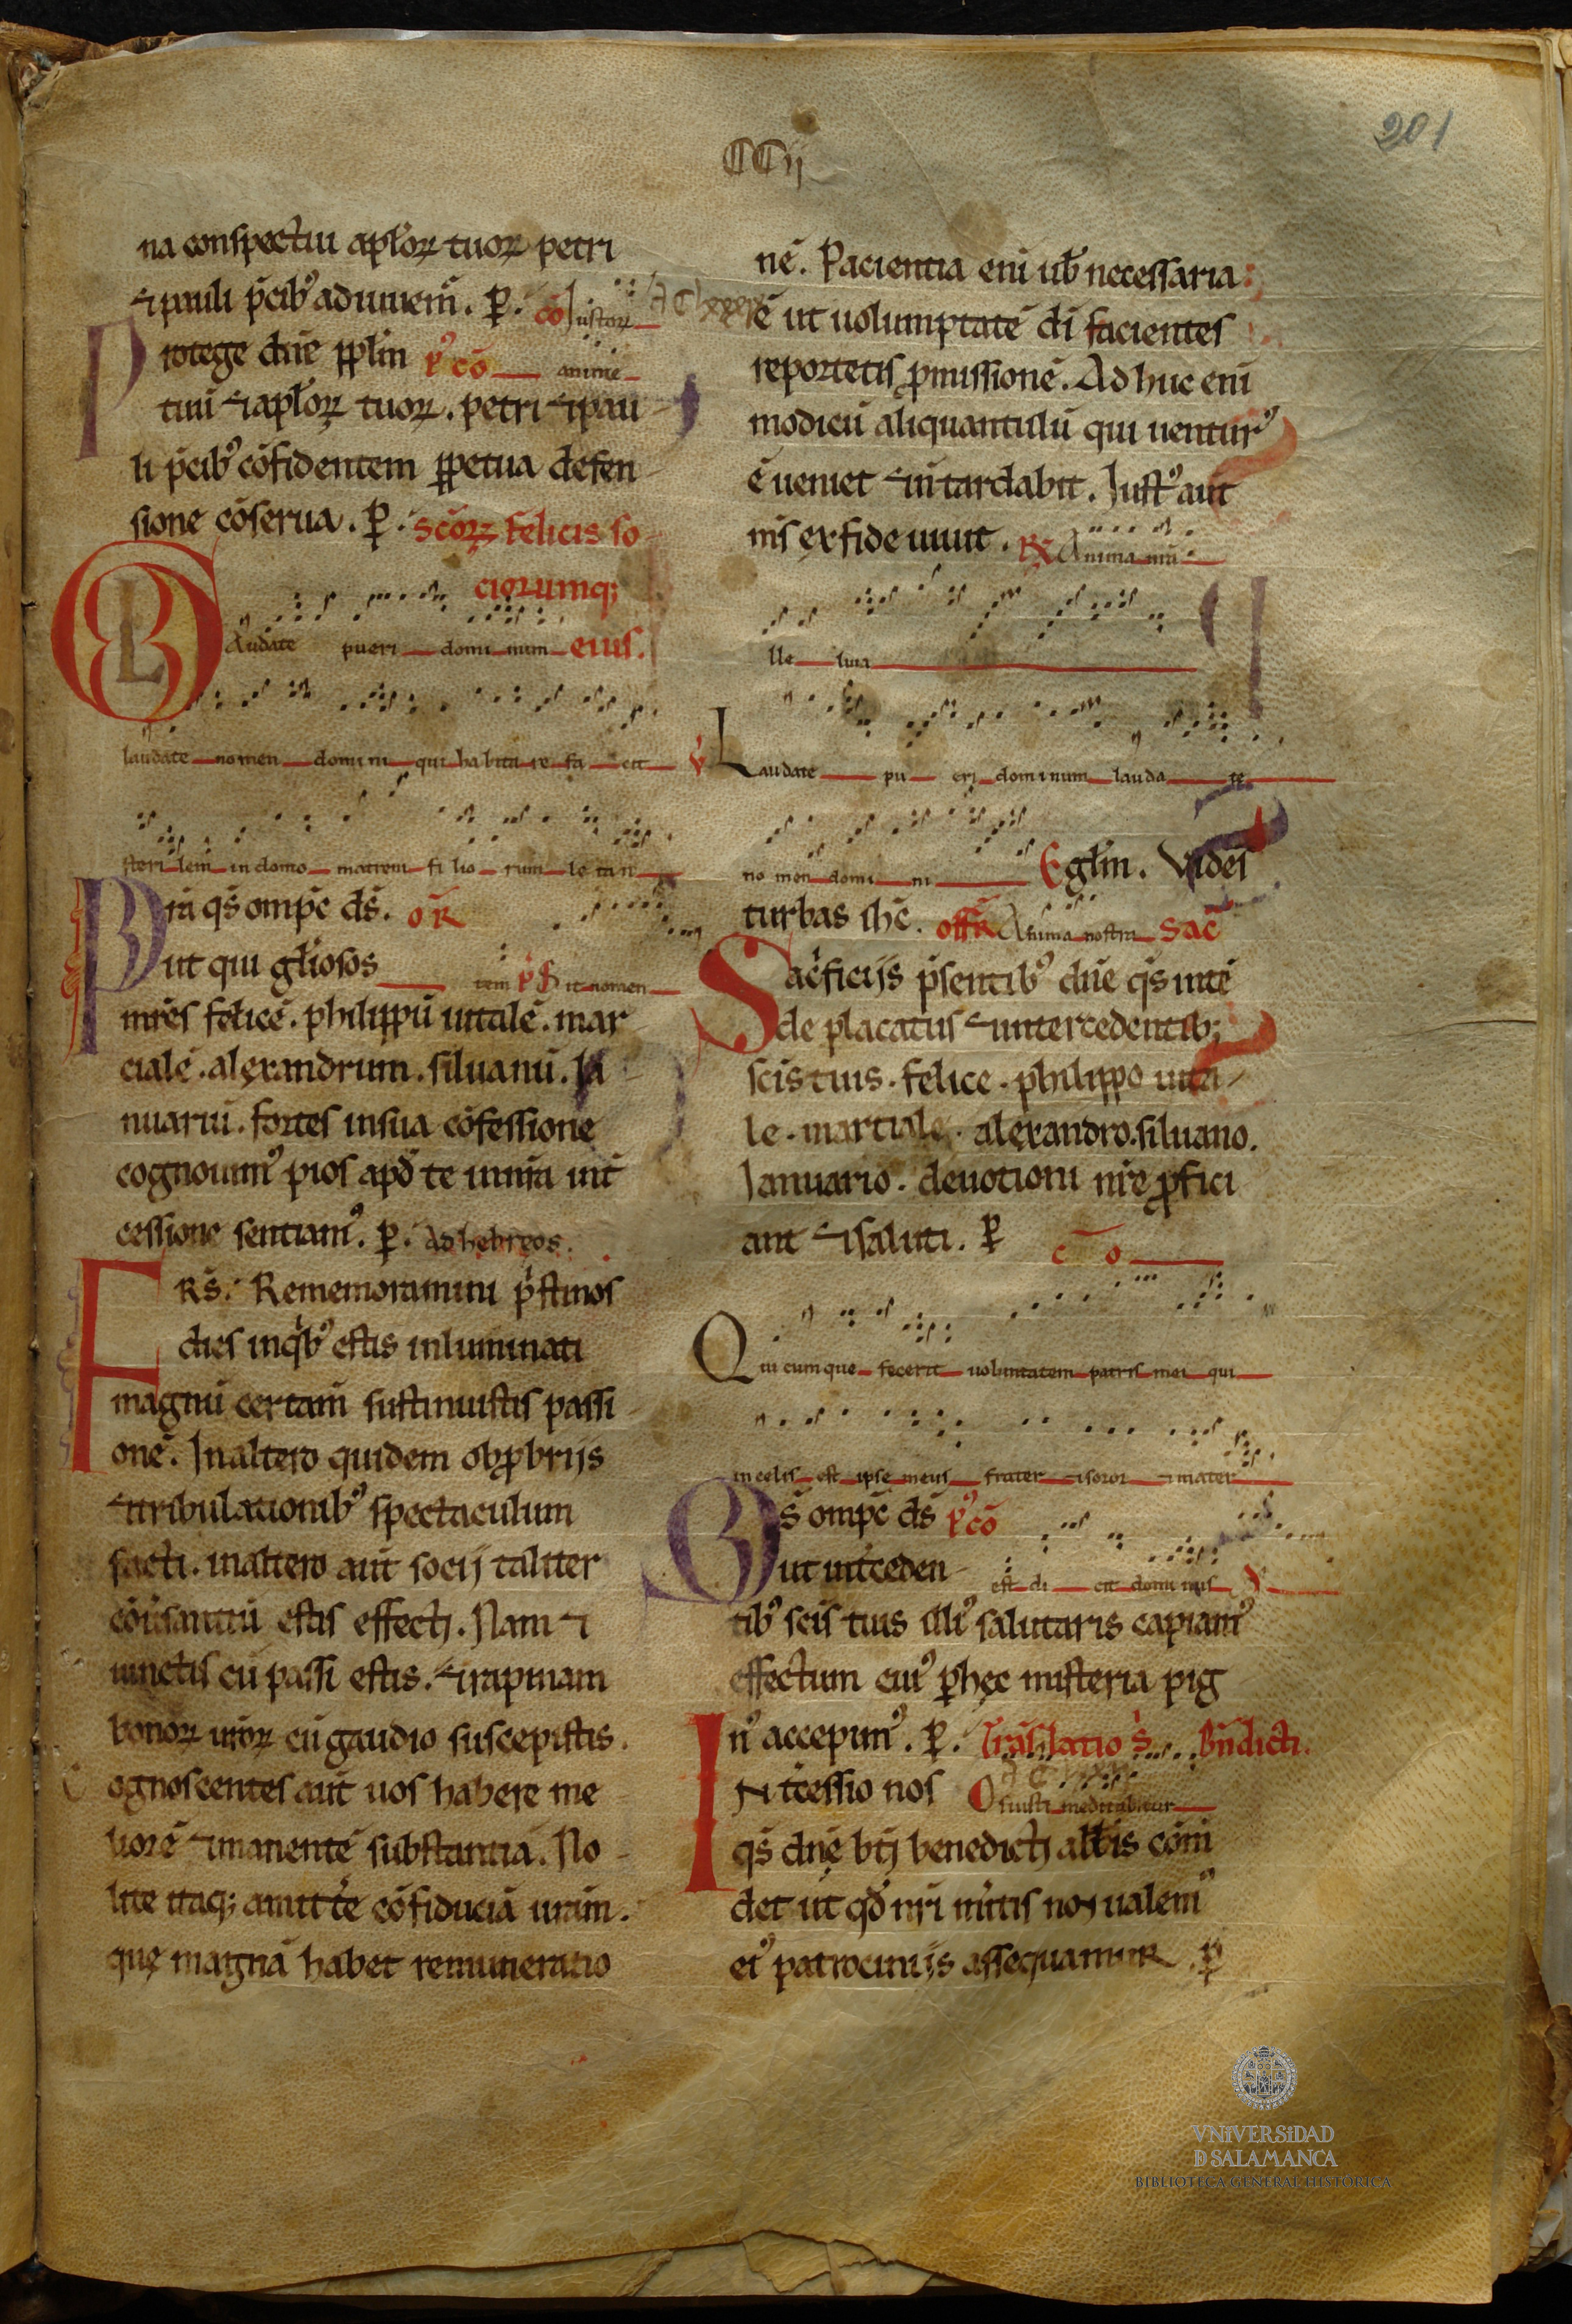 201
CCij
na conspectui aplõꝝ tuoꝝ petri
⁊ pauli p̃cibꝰ adiuuem̃. ꝑ. cõ Iustoꝝ
Protege dñe pplm̃ pꝰcõ anime
tuũ ⁊ aplõꝝ tuoꝝ. petri ⁊ pau
li p̃cibꝰ cõfidentem ꝑpetua defen
sione cõserua. ꝑ. Scõꝝ felicis so
ciorumq;
Laudate pueri dominum eius.
laudate nomen domini qui habitare facit
sterilem in domo matrem filiorum letan
Pr̃a q̃s omp̃c ds̃. oR̃
ut qui gl̃iosos tem p̃s Sit nomen
mr̃es felicẽ. philippũ uitalẽ. mar
cialẽ. alexandrum. siluanũ. Ia
nuariũ. fortes in sua cõfessione
cognouimꝰ pios apd̃ te in nr̃a int̃
cessione sentiamꝰ. ꝑ. Ad hebreos.
FRS̃. Rememoramini p̃stinos
dies in q̃bꝰ estis inluminati
magnũ certam̃ sustinuistis passi
onẽ. In altero quidem obꝓbrijs
⁊ tribulationibꝰ spectaculum
facti. in altero aut̃ socij taliter
cõũsantiũ estis effecti. Nam ⁊
uinctis cũ passi estis. ⁊ rapinam
bonoꝝ ur̃oꝝ cũ gaudio suscepistis.
Cognoscentes aut̃ uos habere me
liorẽ ⁊ manentẽ substantiã. No
lite itaq; amitt̃e cõfiduciã ur̃am.
quę magnã habet remuneratio
nẽ. Pacientia eni ub̃ necessaria
ẽ ut uolumptatẽ di facientes
reportetis ꝓmissionẽ. Adhuc eni
modicũ aliquantulũ qui uenturꝰ
ẽ ueniet ⁊ ñ tardabit. Iustꝰ aut̃
m̃s ex fide uiuit. R̃ Anima nr̃a
Alleluia
V̓ Laudate pueri dominum laudate
nomen domini Egl̃m. Vides
turbas ihc̃. off̃R Anima nostra Sac̃
Sac̃ficijs p̃sentibꝰ dñe q̃s inte
de placatus ⁊ intercedentib;
sc̃is tuis. felice. philippo uita
le. martiale. alexandro. siluano.
Ianuario. deuotioni nr̃e ꝓfici
ant ⁊ saluti. ꝑ cõ
Quicumque fecerit uoluntatem patris mei qui
in celis est ipse meus frater ⁊ soror ⁊ mater
Qs̃ omp̃c ds̃ pꝰcõ
ut int̃ceden est dicit dominus
tibꝰ sc̃is tuis illiꝰ salutaris capiamꝰ
effectum cuiꝰ ꝑ hęc misteria pig
nꝰ accepimꝰ. ꝑ. Trãslatio S̃. Bñdicti.
INt̃cessio nos Os iusti meditabitur
q̃s dñe bt̃i benedicti abbatis com̃
det ut qd̃ nr̃i mẽtis non ualemꝰ
eiꝰ patrocinijs assequamuR. ꝑ
VNiVERSiDAD
D SALAMANCA
BIBLIOTECA GENERAL HISTÓRICA